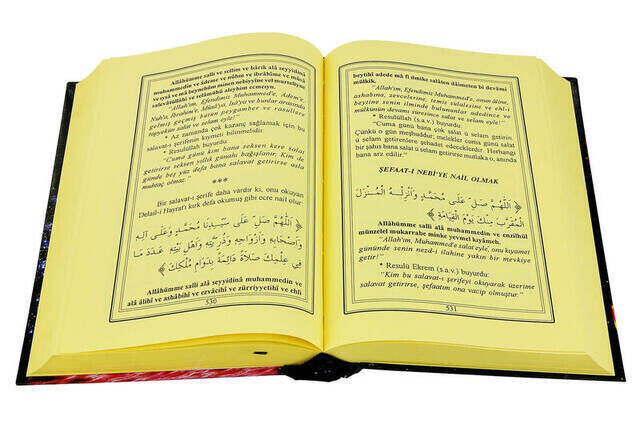 Allâhümme salli ve sellim ve bârik alâ seyyidinâ
muhammedin ve âdeme ve nûhın ve ibrâhime ve mûsâ
ve iysâ ve mâ beynehüm minen nebiyyine vel mürseliyne
salevâtüllâhi ve selâmühû aleyhim ecmeıyn.
"Allah'ım, Efendimiz Muhammed'e, Adem'e,
Nuh'a, İbrahim'e, Musa'ya, İsa'ya ve bunlar arasında
gelmiş geçmiş bütün peygamber ve rasullere
* Az zamanda çok kazanç sağlamak için bu
salavat-ı şerifenin kıymeti bilinmelidir.
* Resulullah (s.a.v.) buyurdu:
"Cuma günü bana seksen kere salat
getirirse seksen yıllık günahı bağışlanır. Kim de
günde beş yüz defa bana salavat getirirse asla
muhtaç olmaz."
***
Bir salavat-ı şerife daha vardır ki, onu okuyan
Delail-i Hayrat'ı kırk defa okumuş gibi ecre nail olur:
﴿ اَللّٰهُمَّ صَلِّ عَلٰى سَيِّدِنَا مُحَمَّدٍ وَعَلٰى آلِهِ
وَاَصْحَابِهِ وَاَزْوَاجِهِ وَذُرِّيَّتِهِ وَاَهْلِ بَيْتِهِ عَدَدَ مَا
فِي عِلْمِكَ صَلَاةً دَائِمَةً بِدَوَامِ مُلْكِكَ ﴾
Allâhümme salli alâ seyyidinâ muhammedin ve
alâ âlihî ve ashâbihî ve ezvâcihî ve zürriyyetihî ve ehli
530
beytihî adede mâ fi ılmike salâten dâimeten bi devâmi
mülkik.
"Allah'ım, Efendimiz Muhammed'e, onun âline,
ashabına, zevcelerine, temiz sülalesine ve ehl-i
beytine senin ilminde bulunanlar adedince ve
mülkünün devamı süresince salat ve selam eyle!"
* Resûlüllah (s.a.v.) buyurdu:
"Cuma günü bana çok salat ü selam getirin.
Çünkü o gün meşhuddur, melekler cuma günü salat
ü selam getirenlere şehadet edeceklerdir. Herhangi
bir şahıs bana salat ü selam getirirse mutlaka o, anında
bana arz edilir."
ŞEFAAT-I NEBİ'YE NAİL OLMAK
﴿ اَللّٰهُمَّ صَلِّ عَلٰى مُحَمَّدٍ وَاَنْزِلْهُ الْمُنْزَلَ
الْمُقَرَّبَ مِنْكَ يَوْمَ الْقِيَامَةِ ﴾
Allâhümme salli alâ muhammedin ve enzilhül
münzelel mukarrabe minke yevmel kıyâmeh.
"Allah'ım, Muhammed'e salat eyle, onu kıyamet
gününde senin nezd-i ilahine yakın bir mevkiye
getir!"
* Resulü Ekrem (s.a.v.) buyurdu:
"Kim bu salavat-ı şerifeyi okuyarak üzerime
salavat getirirse, şefaatım ona vacip olmuştur."
531